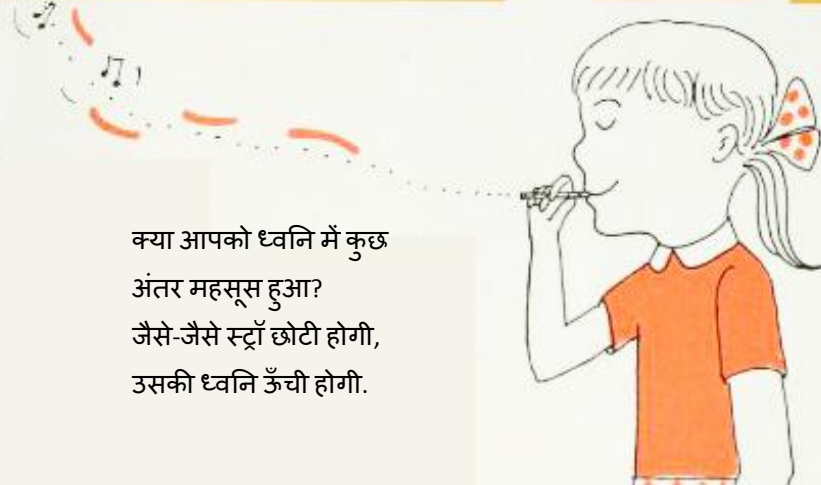 क्या आपको ध्वनि में कुछ
अंतर महसूस हुआ?
जैसे-जैसे स्ट्रॉ छोटी होगी,
उसकी ध्वनि ऊँची होगी.